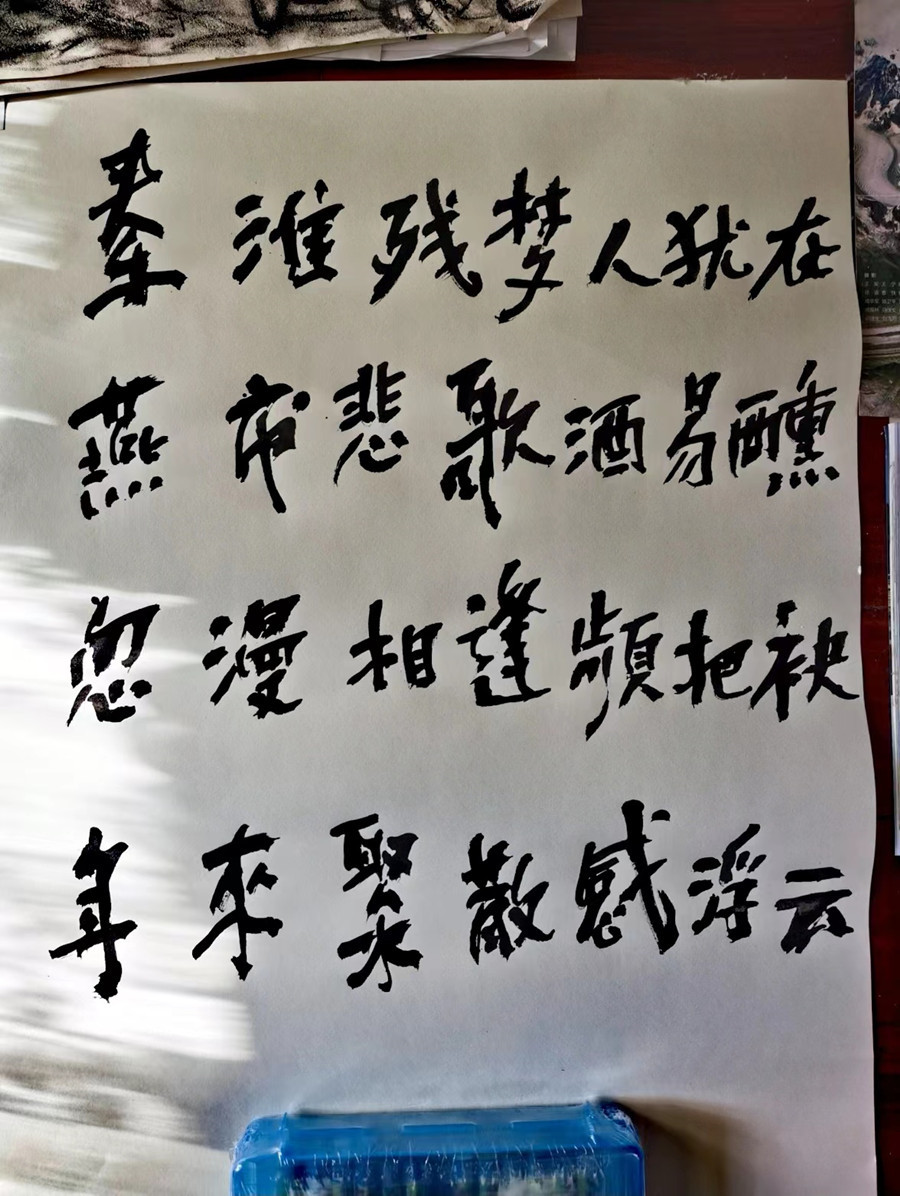 秦淮残梦人犹在
燕市悲歌酒易醺
忽漫相逢频把袂
年來聚散感浮云